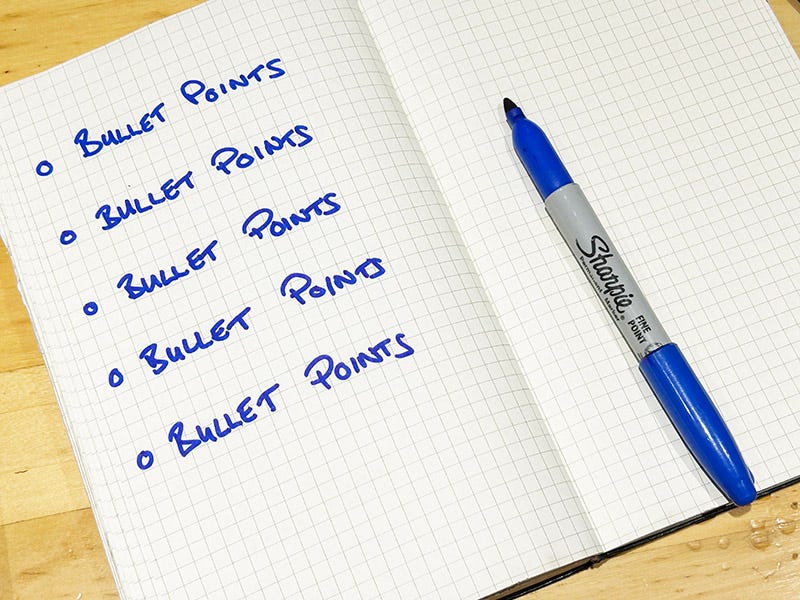 o Bullet Points
o Bullet Points
o Bullet Points
o Bullet Points
o Bullet Points
Sharpie®
Permanent Marker
FINE
POINT